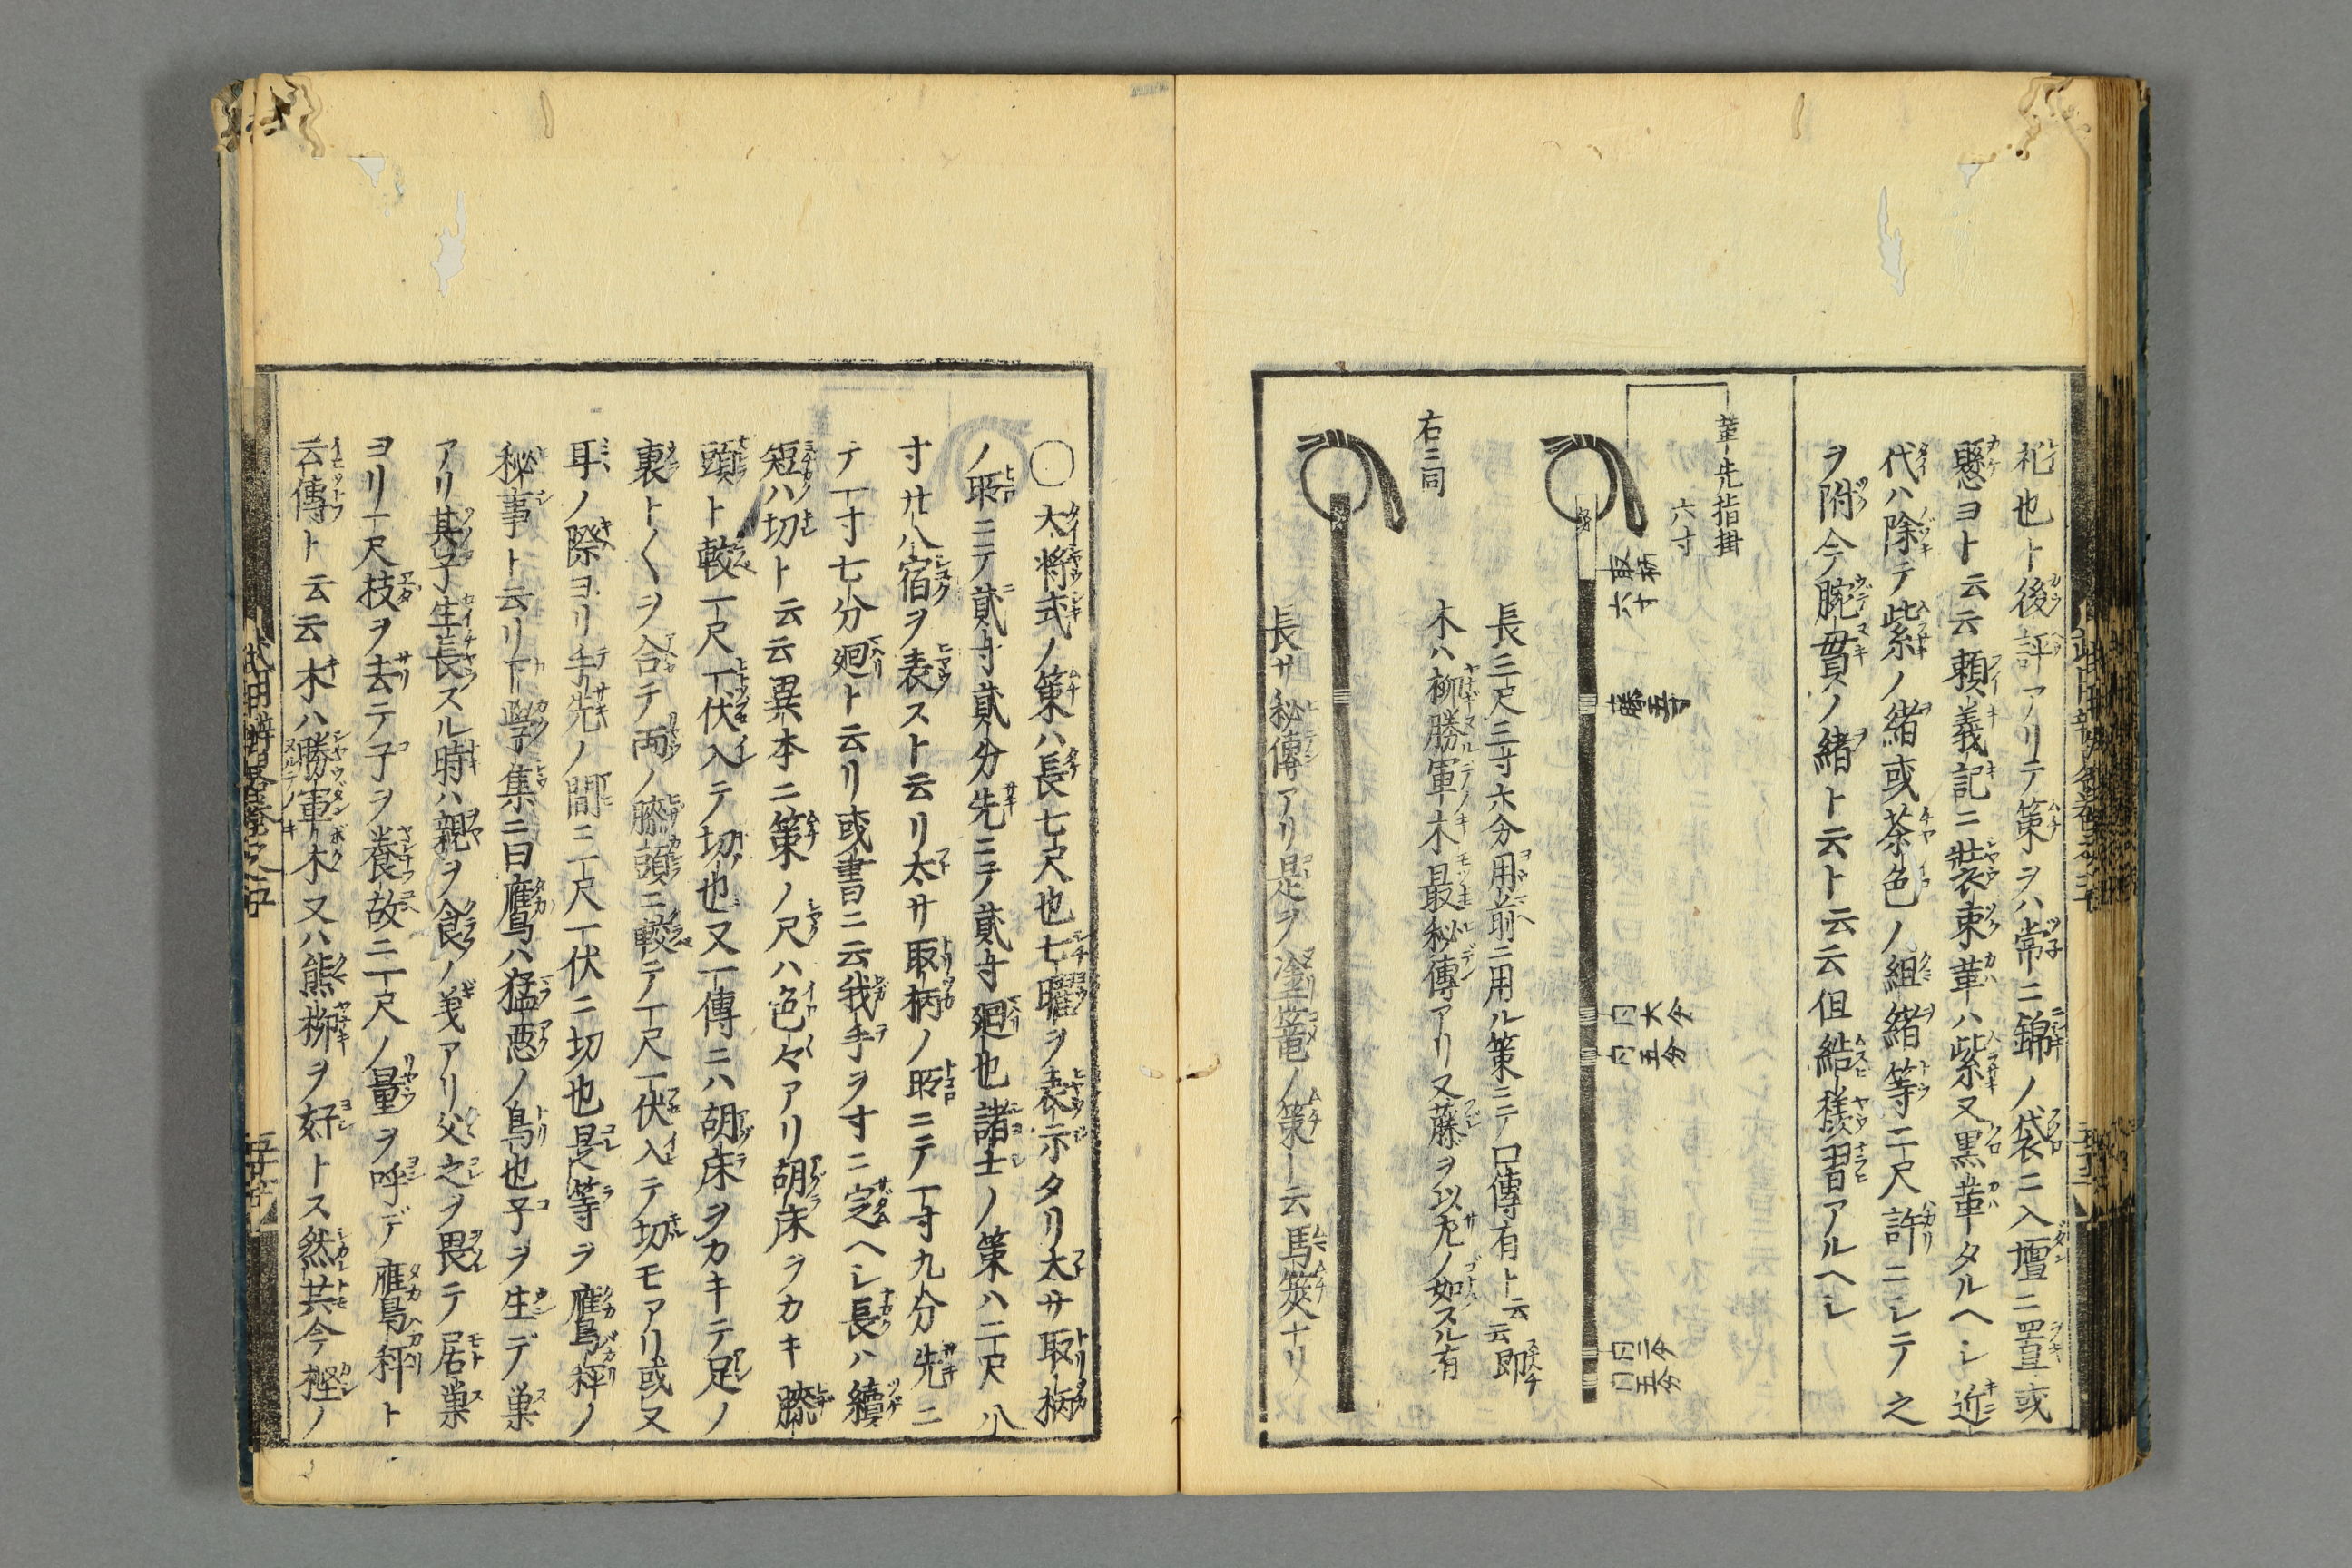 礼也ト後評アリテ策ヲハ常ニ錦ノ袋ニ入壇ニ置或
懸ヨト云云頼義記ニ装束革ハ紫又黒革タルヘシ近
代ハ除テ紫ノ緒或茶色ノ組緒等二尺許ニシテ之
ヲ附今腕貫ノ緒ト云ト云云但結様習アルヘシ
革先指掛
六寸
取柄
六寸
藤五寸
六分
五分
三分
五分
長三尺三寸六分用前ニ用ル策ニテ口傳有ト云云即
木ハ柳勝軍木最秘傳アリ又藤ヲ以左ノ如スル有
右ニ同
長サ秘傳アリ是ヲ塗篭ノ策ト云馬策ナリ
〇大将式ノ策ハ長七尺也七曜ヲ表示タリ太サ取柄
ノ所ニテ貳寸貳分先ニテ貳寸廻也諸士ノ策ハ二尺八
寸廿八宿ヲ表スト云リ太サ取柄ノ所ニテ一寸九分先ニ
テ一寸七分廻ト云リ或書ニ云我手ヲ寸ニ定ヘシ長ハ續
短ハ切ト云云異本ニ策ノ尺ハ色々アリ胡床ヲカキ膝
頭ト較一尺一伏入テ切也又一傳ニハ胡床ヲカキテ足ノ
裏ト〱ヲ合テ両ノ膝頭ニ較テ一尺一伏入テ切モアリ或又
耳ノ際ヨリ手先ノ間ニ一尺一伏ニ切也是等ヲ鷹秤ノ
秘事ト云リ下學集ニ曰鷹ハ猛悪ノ鳥也子ヲ生デ巣
アリ其子生長スル時ハ親ヲ食ノ義アリ父之ヲ畏テ居巣
ヨリ一尺枝ヲ去テ子ヲ養故ニ一尺ノ量ヲ呼デ鷹秤ト
云傳ト云云木ハ勝軍木又ハ熊柳ヲ好トス然共今樫ノ